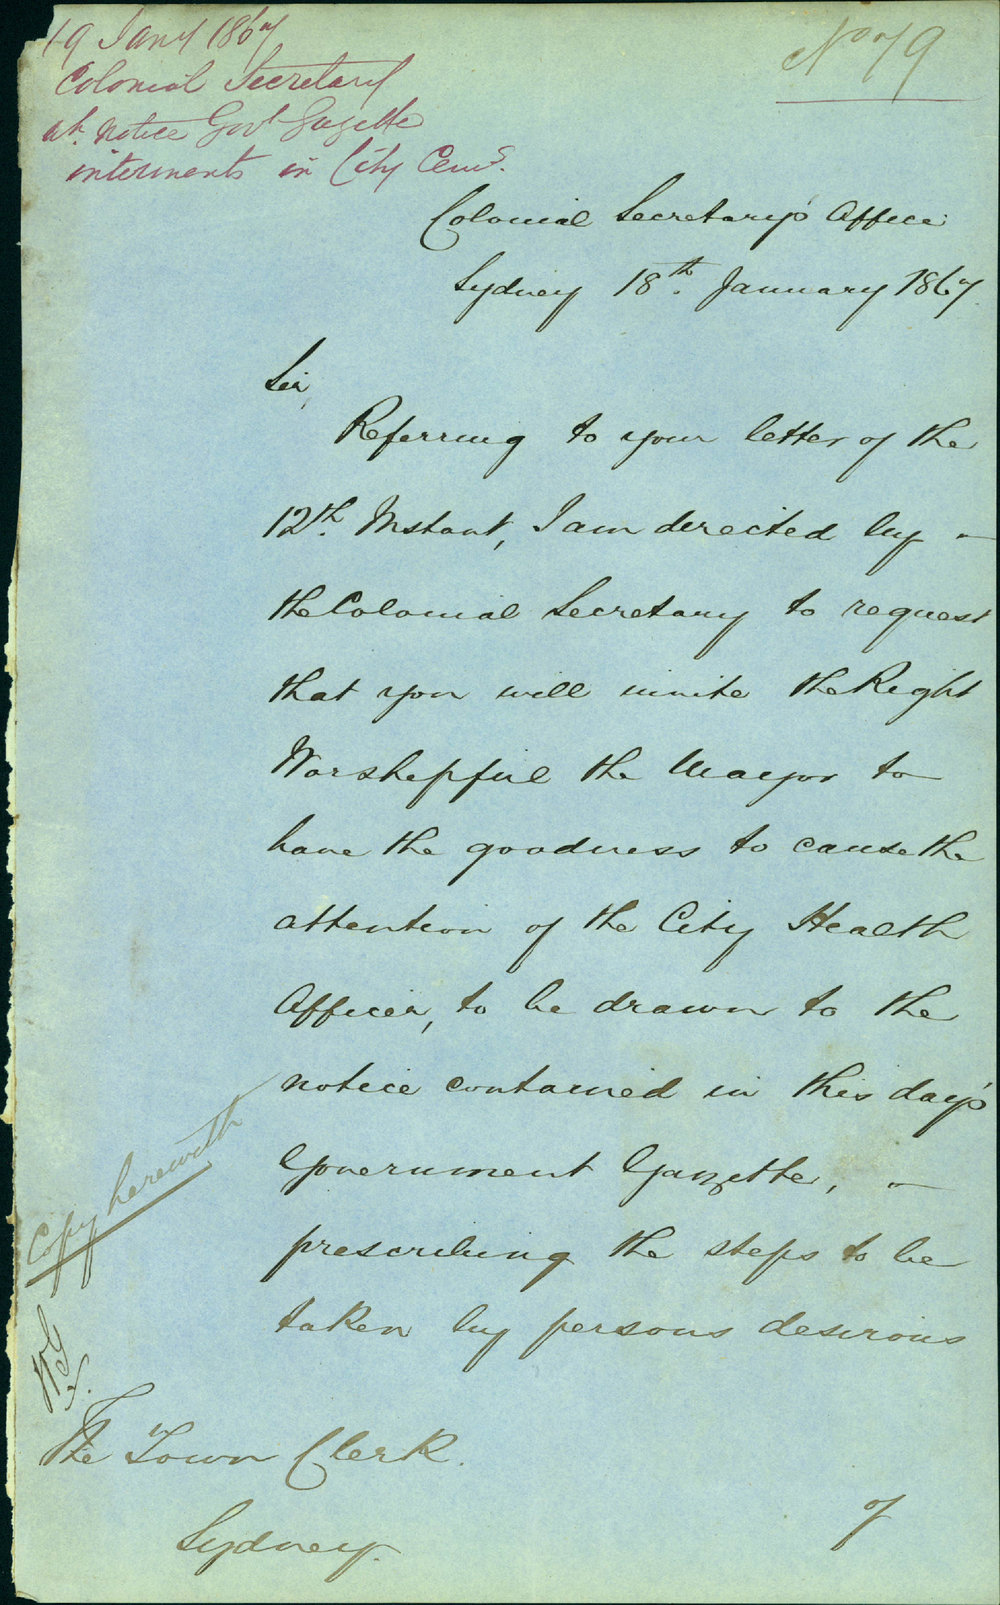 19 Jany 1867
Colonial Secretary
at. notice Govt Gazette
interments in City Cems.
No 79
Colonial Secretary's Office
Sydney 18th. January 1867.
Sir,
Referring to your letter of the
12th. Instant, I am directed by -
the Colonial Secretary to request
that you will invite the Right
Worshipful the Mayor to
have the goodness to cause the
attention of the City Health
Officer, to be drawn to the
notice contained in this day's
Government Gazette, -
prescribing the steps to be
taken by persons desirous
Copy herewith
The Town Clerk.
Sydney.
of